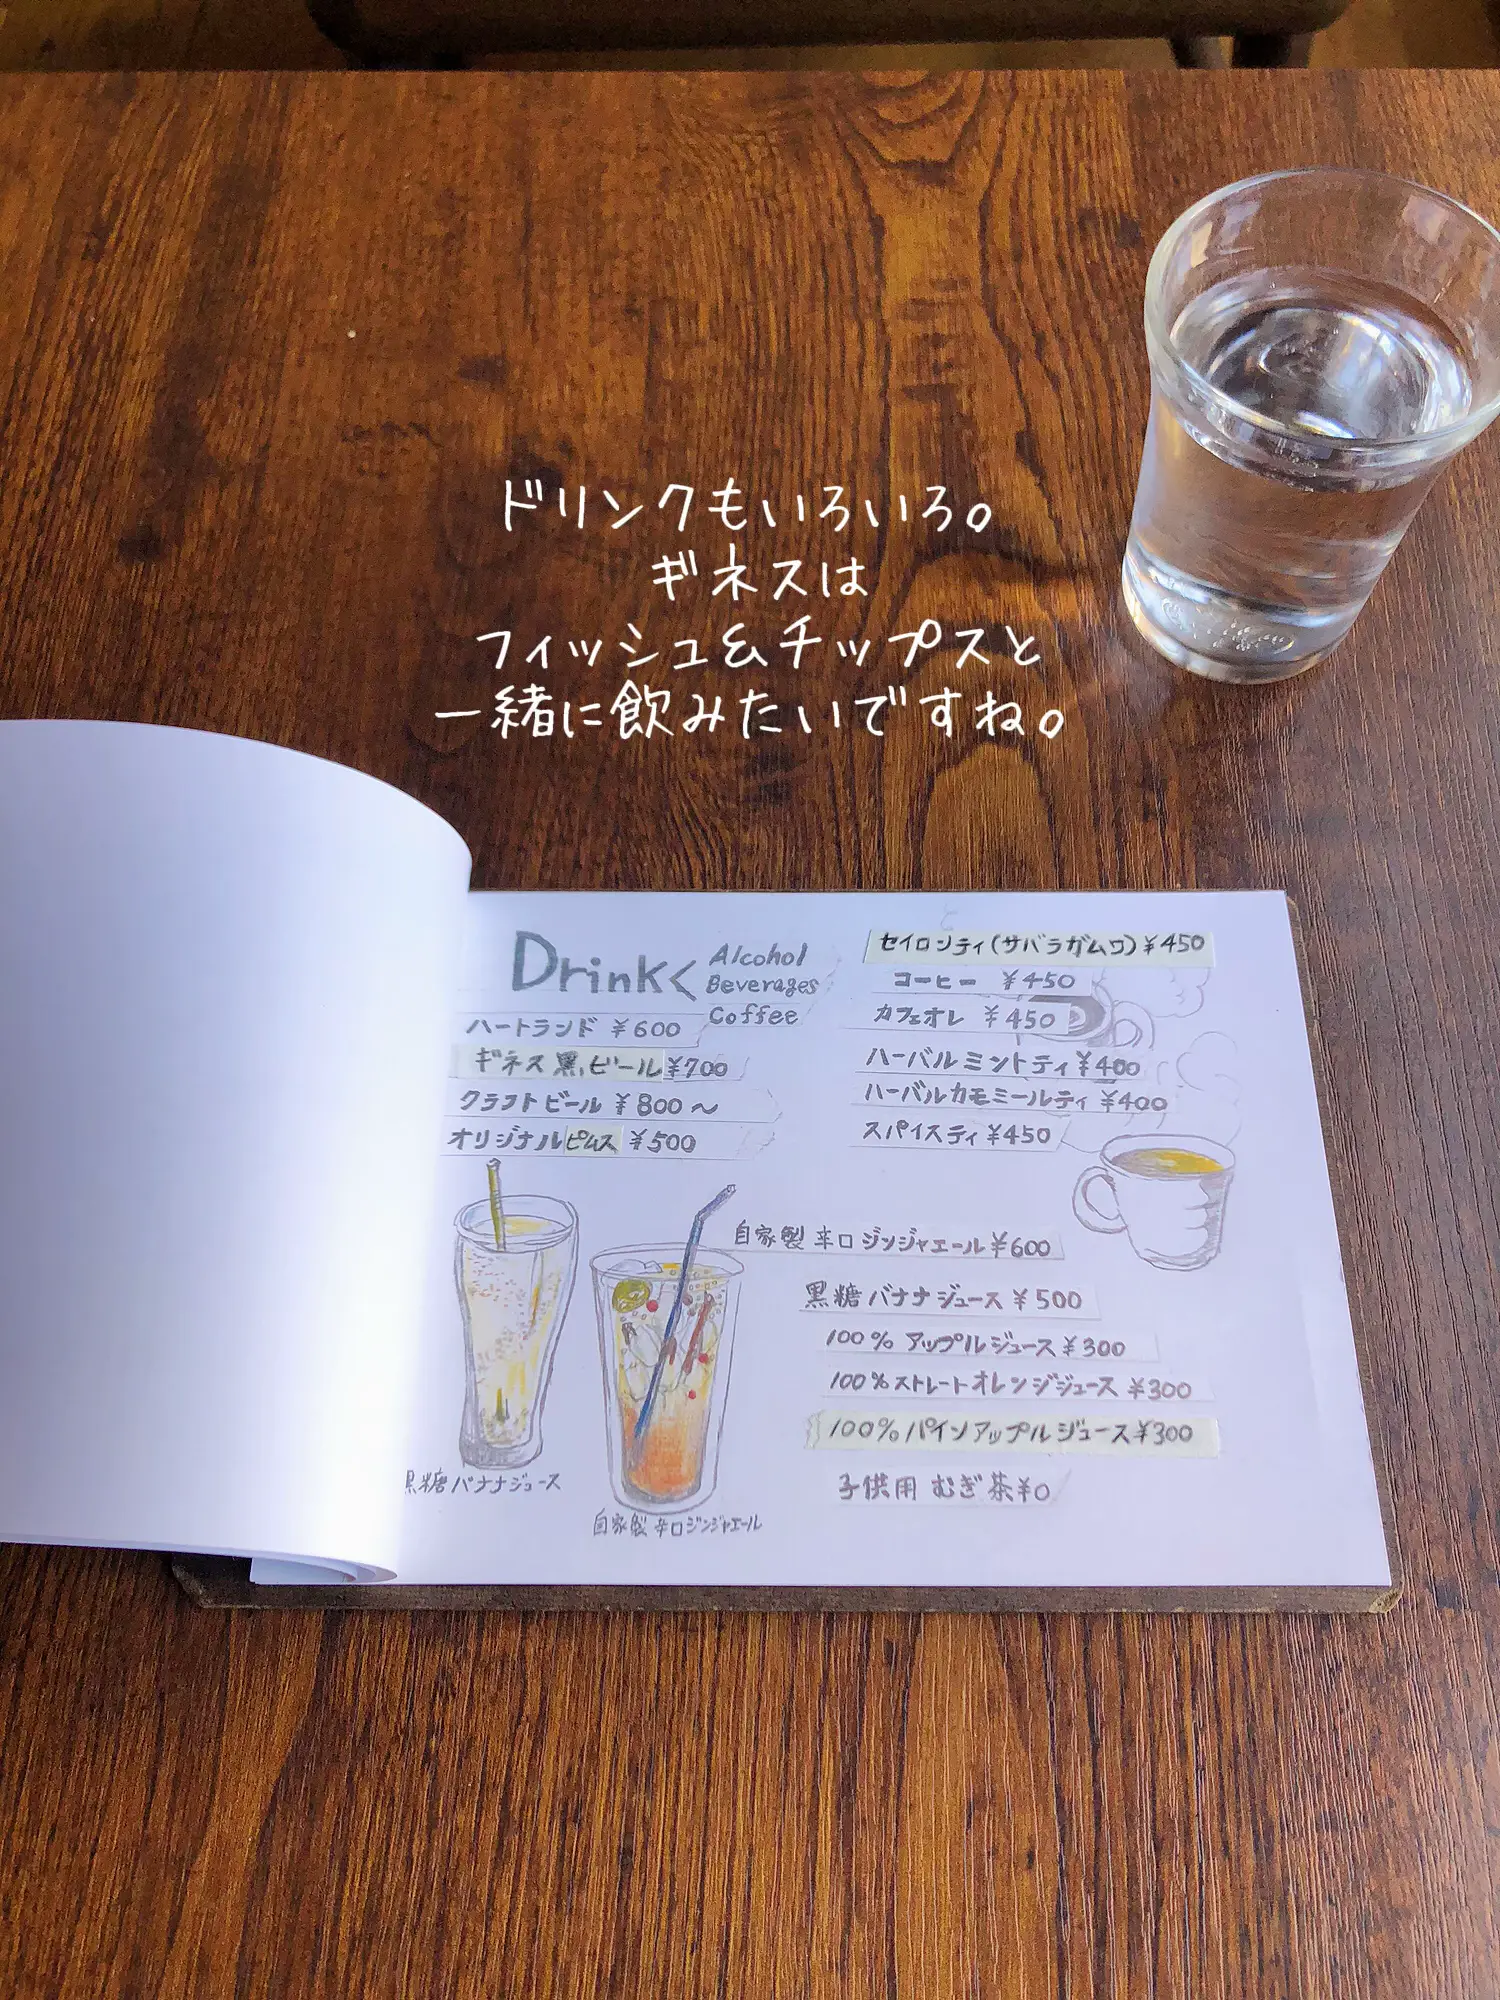 ドリンクもいろいろ。
ギネスは
フィッシュ&チップスと
一緒に飲みたいですね。
Drink
Alcohol
Beverages
Coffee
ハートランド ¥600
ギネス黒ビール¥700
クラフトビール ¥800〜
オリジナルピムス ¥500
セイロンティ(サバラガムワ)¥450
コーヒー ¥450
カフェオレ ¥450
ハーバルミントティ¥400
ハーバルカモミールティ¥400
スパイスティ¥450
自家製辛口ジンジャエール¥600
黒糖バナナジュース¥500
100%アップルジュース¥300
100%ストレートオレンジジュース¥300
100%パインアップルジュース¥300
子供用むぎ茶¥0
黒糖バナナジュース
自家製辛口ジンジャエール